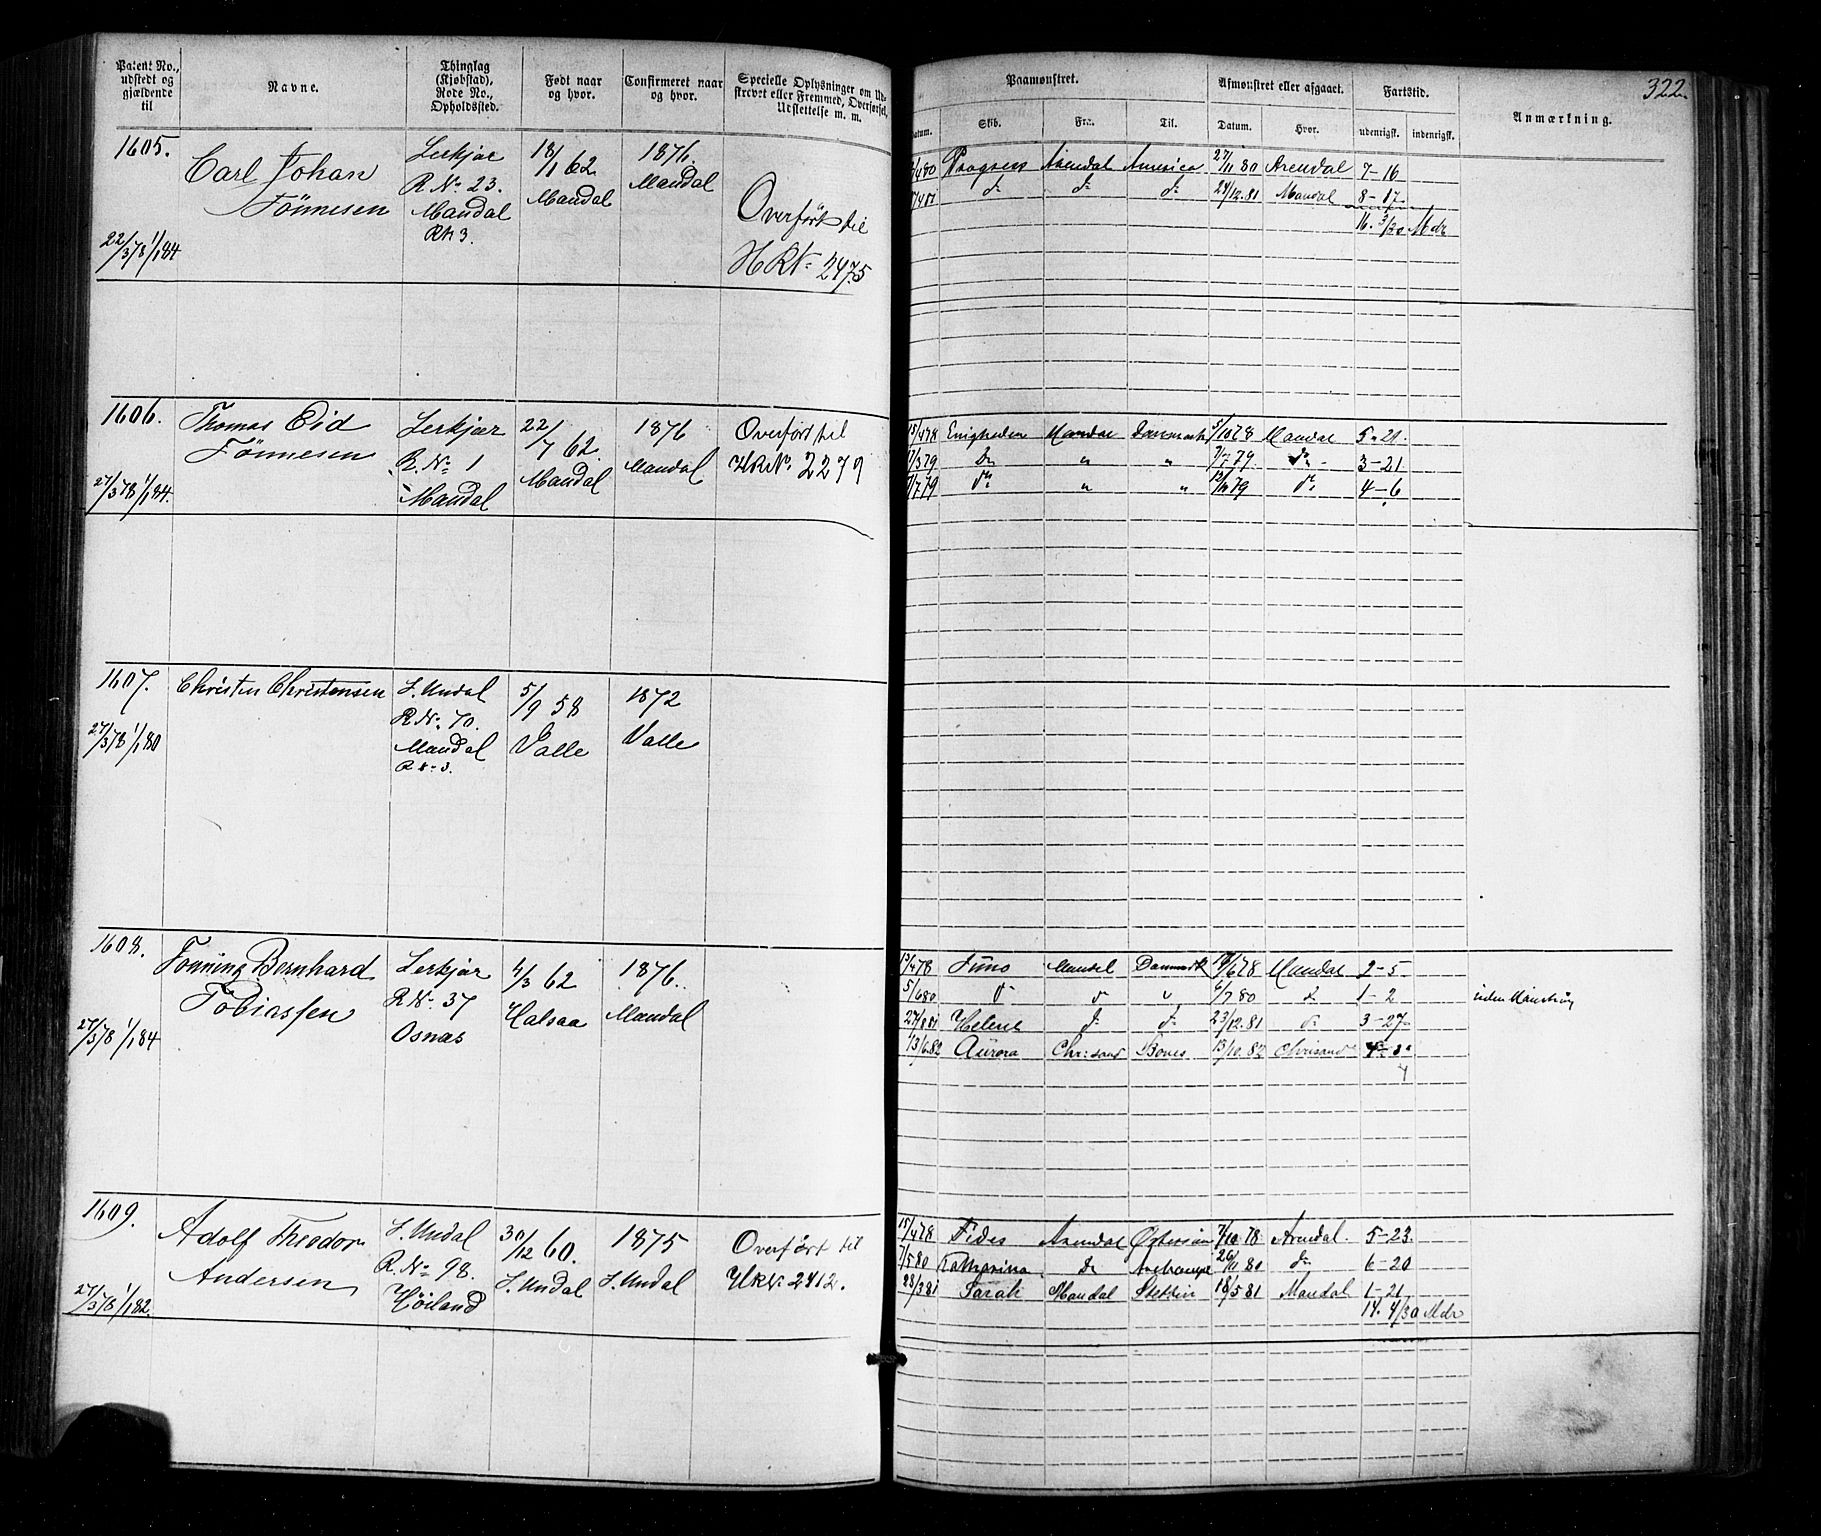 Patent No., udstedt og gjældende til
Navne.
Thinglag (Kjøbstad), Rode No., Opholdssted.
Født naar og hvor.
Confirmeret naar og hvor.
Specielle Oplysninger om Udskrevet eller Fremmed, Overførsel, Udslettelse m. m.
Paamønstret.
Datum.
Skib.
Fra.
Til.
Afmønstret eller afgaaet.
Datum.
Hvor.
Fartstid.
udenrigsk.
indenrigsk.
Anmærkning.
322.
1605.
22/3 78 1/1 84
Carl Johan
Tönnesen
Lerkjær
R No 23.
Mandal
R N 3.
18/1 62.
Mandal
1876.
Mandal
Overført til
HRN. 2475
4 80 Arendal America 27/11 80 Arendal 7-16
4 81 do do do 24/12.81 Mandal 8-17
16. 3/30 Mdr
1606.
27/3 78 1/1 84.
Thomas Eid
Tönnesen
Lerkjær
R. No 1
Mandal
22/7 62.
Mandal
1876
Mandal
Overført til
HRN. 2279
15/4 78 Enigheden Mandal Danmark 5/10 78 Mandal 5-21.
3 79 Do " " 7/7 79. do 3-21
7/7 79 do " " 79 do 4-6
1607.
27/3 78 1/1 80
Christen Christensen
S. Undal
R No 70.
Mandal
R N 3.
5/9 58
Valle
1872
Valle
1608.
27/3 78 1/1 84
Tönning Bernhard
Tobiassen
Lerkjær
R No 37
Osnas
4/3 62
Halsaa
1876.
Mandal
15/4 78 Juno Mandal Danmark 6 78 Mandal 2-5
5/6 80 do do " 6/7 80 do 1-2 uden Mönstring
27/8 81 Helene do do 23/12.81 do 3-27
13/6.82 Aurora Chr:sand 13/10.82 Chrisand
4
1609.
27/3 78 1/1 82.
Adolf Theodor
Andersen
S. Undal
R. No 98.
Höiland
30/12 60.
S. Undal
1875
S. Undal
Overført til
HRN 2412.
15/4 78 Fides Arendal Østersöen 7/10.78 Arendal. 5-23.
7/5 80 Katharina Do 26/11 80 do 6-20
28/3 81 Sarah Mandal Stettin 18/5 81 Mandal 1-21
14. 4/30 Mdr